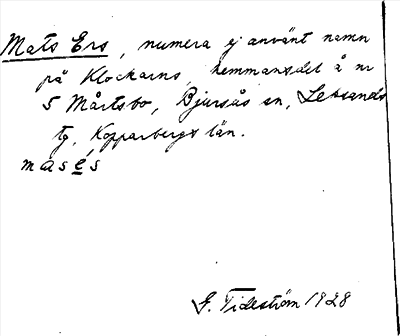 Mats Ers, numera ej använt namn
på Klockarns, hemmansdel å nr
5 Mårtsbo, Bjursås sn, Leksands
tg, Kopparbergs län.
masés
G. Tideström 1928